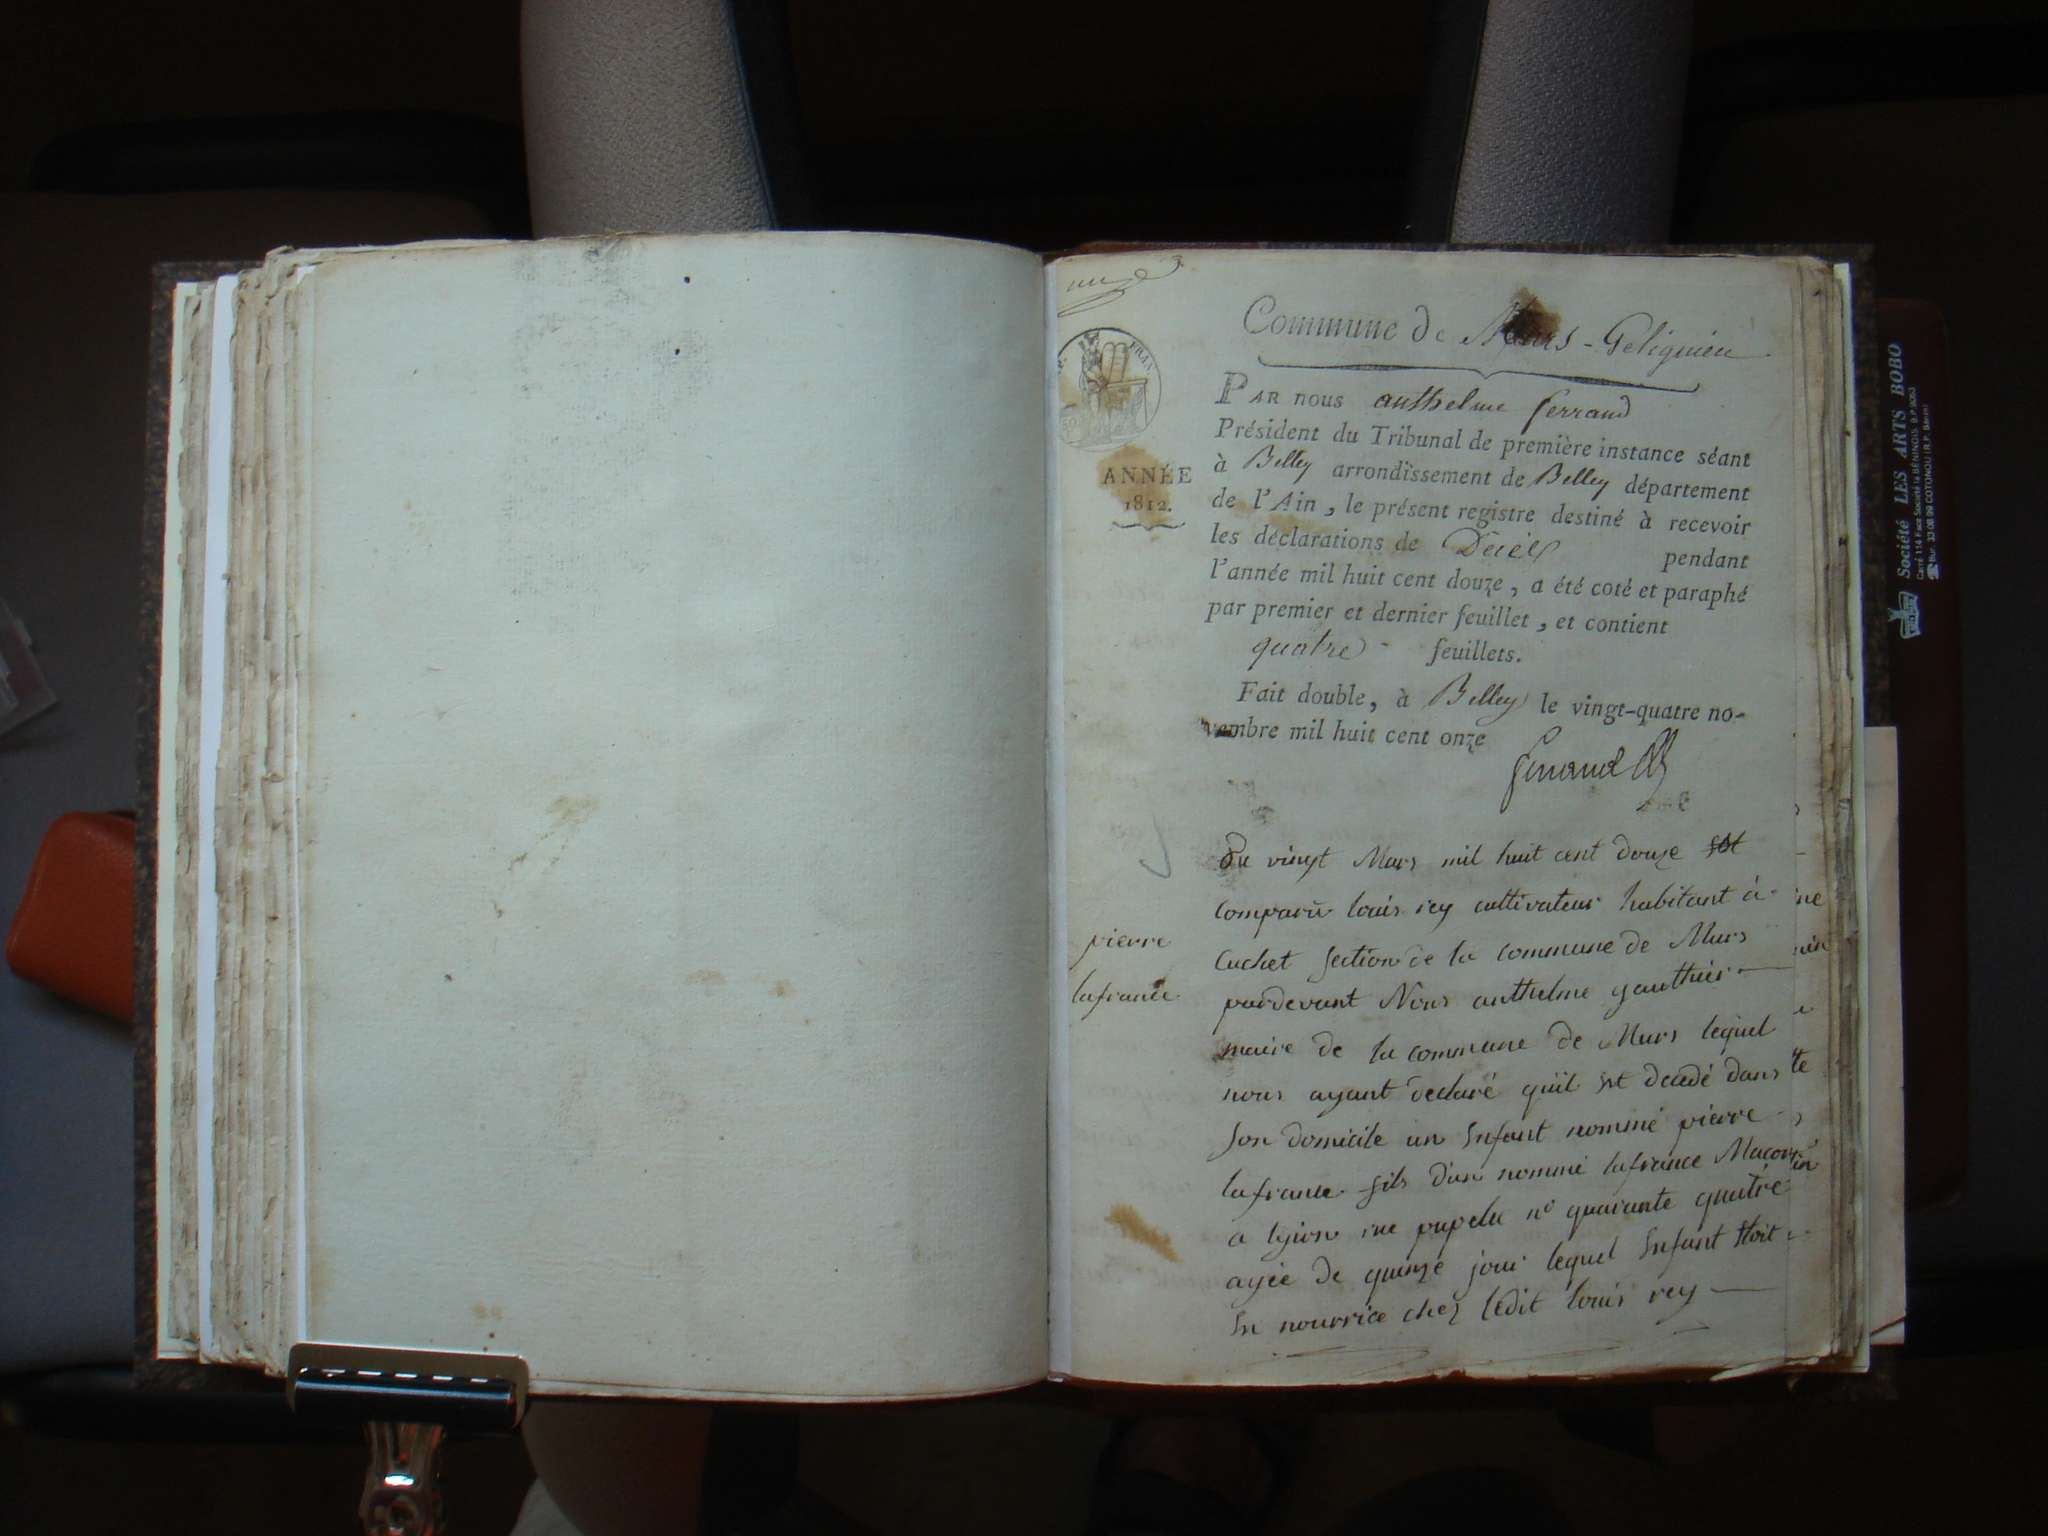 Commune de Murs-Gelignieu
PAR nous anthelme ferrand
Président du Tribunal de première instance séant
à Belley arrondissement de Belley département
de l'Ain, le présent registre destiné à recevoir
les déclarations de Décès pendant
l'année mil huit cent douze, a été coté et paraphé
par premier et dernier feuillet, et contient
quatre feuillets.
Fait double, à Belley le vingt-quatre no-
vembre mil huit cent onze
ferrand
FRAN
ANNÉE
1812.
pierre
lafrance
Du vingt Mars mil huit cent douze est
comparu louis rey cultivateur habitant à
Cuchet section de la commune de Murs
pardevant Nous anthelme gauthier
maire de la commune de Murs lequel
nous ayant declaré quil est decedé dans
son domicile un Enfant nommé pierre
lafrance fils d'un nommé lafrance Macon
a lyion rue pupelu n° quarante quatre
agée de quinze jour lequel Enfant Etoit
En nourrice chez ledit louis rey
Société LES ARTS BOBO
Carré 114 Face Société la BÉNINOIS. B.P.
Bur. 33 08 99 COTONOU (R.P. Bénin)